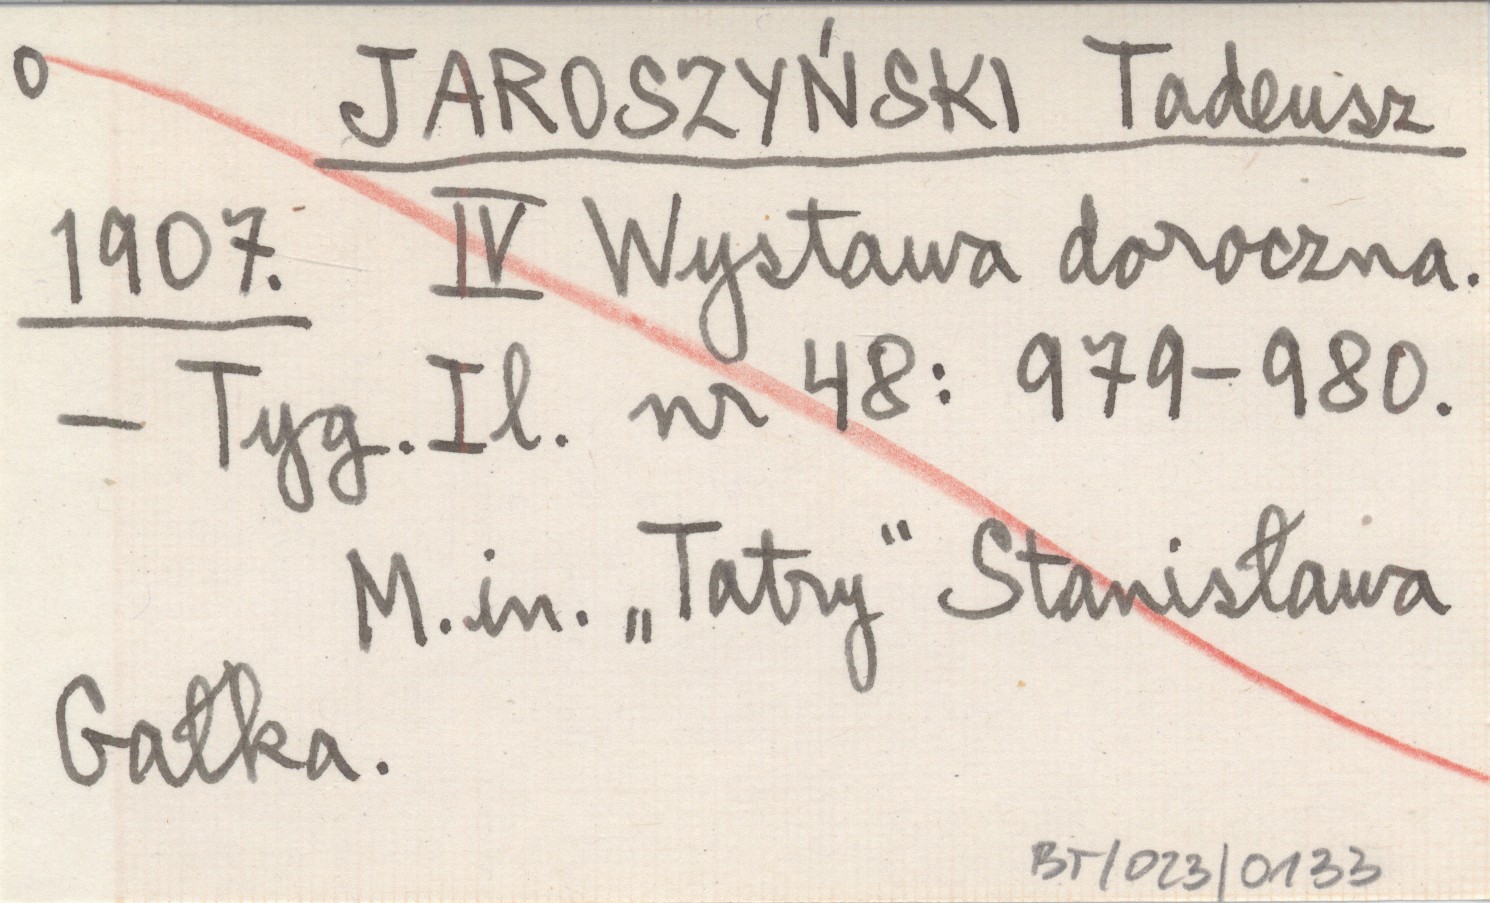 o JAROSZYŃSKI Tadeusz
1907. IV Wystawa doroczna.
- Tyg. Il. nr 48: 979-980.
M. in. „Tatry" Stanisława
Gałka.
BT/023/0133